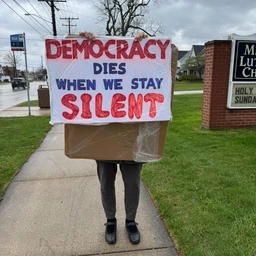 DEMOCRACY
DIES
WHEN WE STAY
SILENT
HOLY
SUNDA